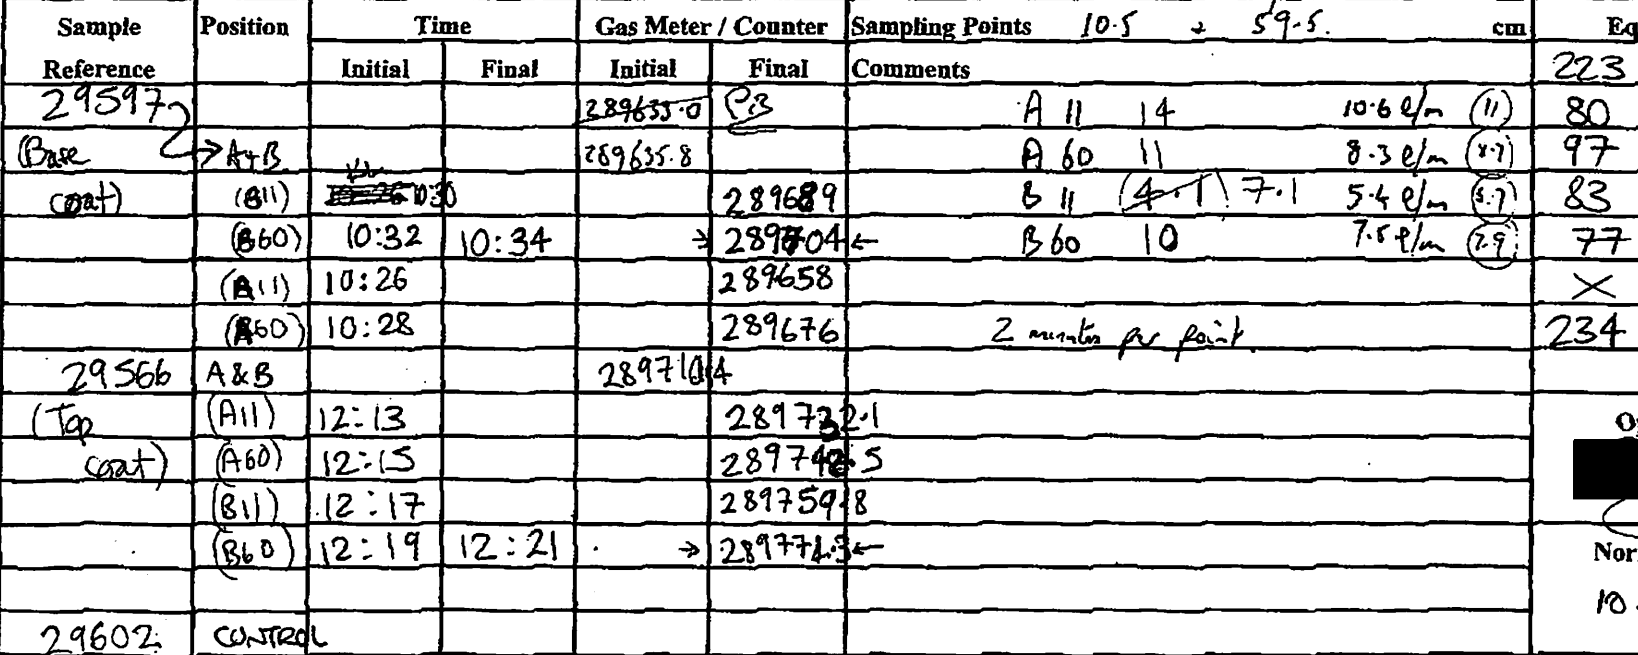 Sample Position Time Gas Meter / Counter Sampling Points 10.5 → 59.5. cm Eq
Reference Initial Final Initial Final Comments 223
29597 289635.0 A 11 14 10.6 l/m (11) 80
(Base A+B 289635.8 A 60 11 8.3 l/m (8.7) 97
coat) (B11) 10:30 289689 B 11 (4.1) 7.1 5.4 l/m (5.7) 83
(B60) 10:32 10:34 → 289704 ← B60 10 7.5 l/m (7.9) 77
(A11) 10:26 289658 X
(A60) 10:28 289676 2 minutes per point. 234
29566 A&B 289710.4
(Top (A11) 12:13 289732.1
coat) (A60) 12:15 28974 .5
(B11) 12:17 289759.8
(B60) 12:19 12:21 → 289774.3 ←
Nor
10.
29602 CONTROL